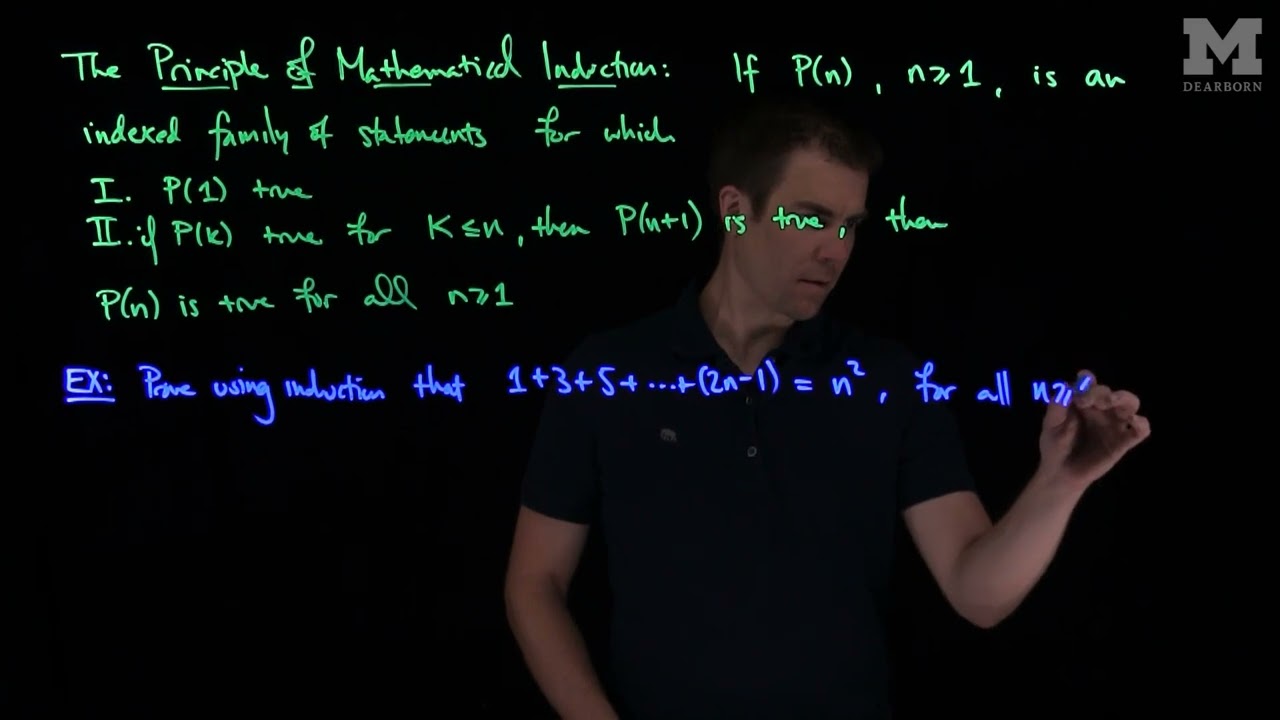 The Principle of Mathematical Induction: If P(n), n≥1, is an
indexed family of statements for which
I. P(1) true
II. if P(k) true for K≤n, then P(n+1) is true, then
P(n) is true for all n≥1
EX: Prove using induction that 1+3+5+...+(2n-1) = n², for all n≥
M
DEARBORN